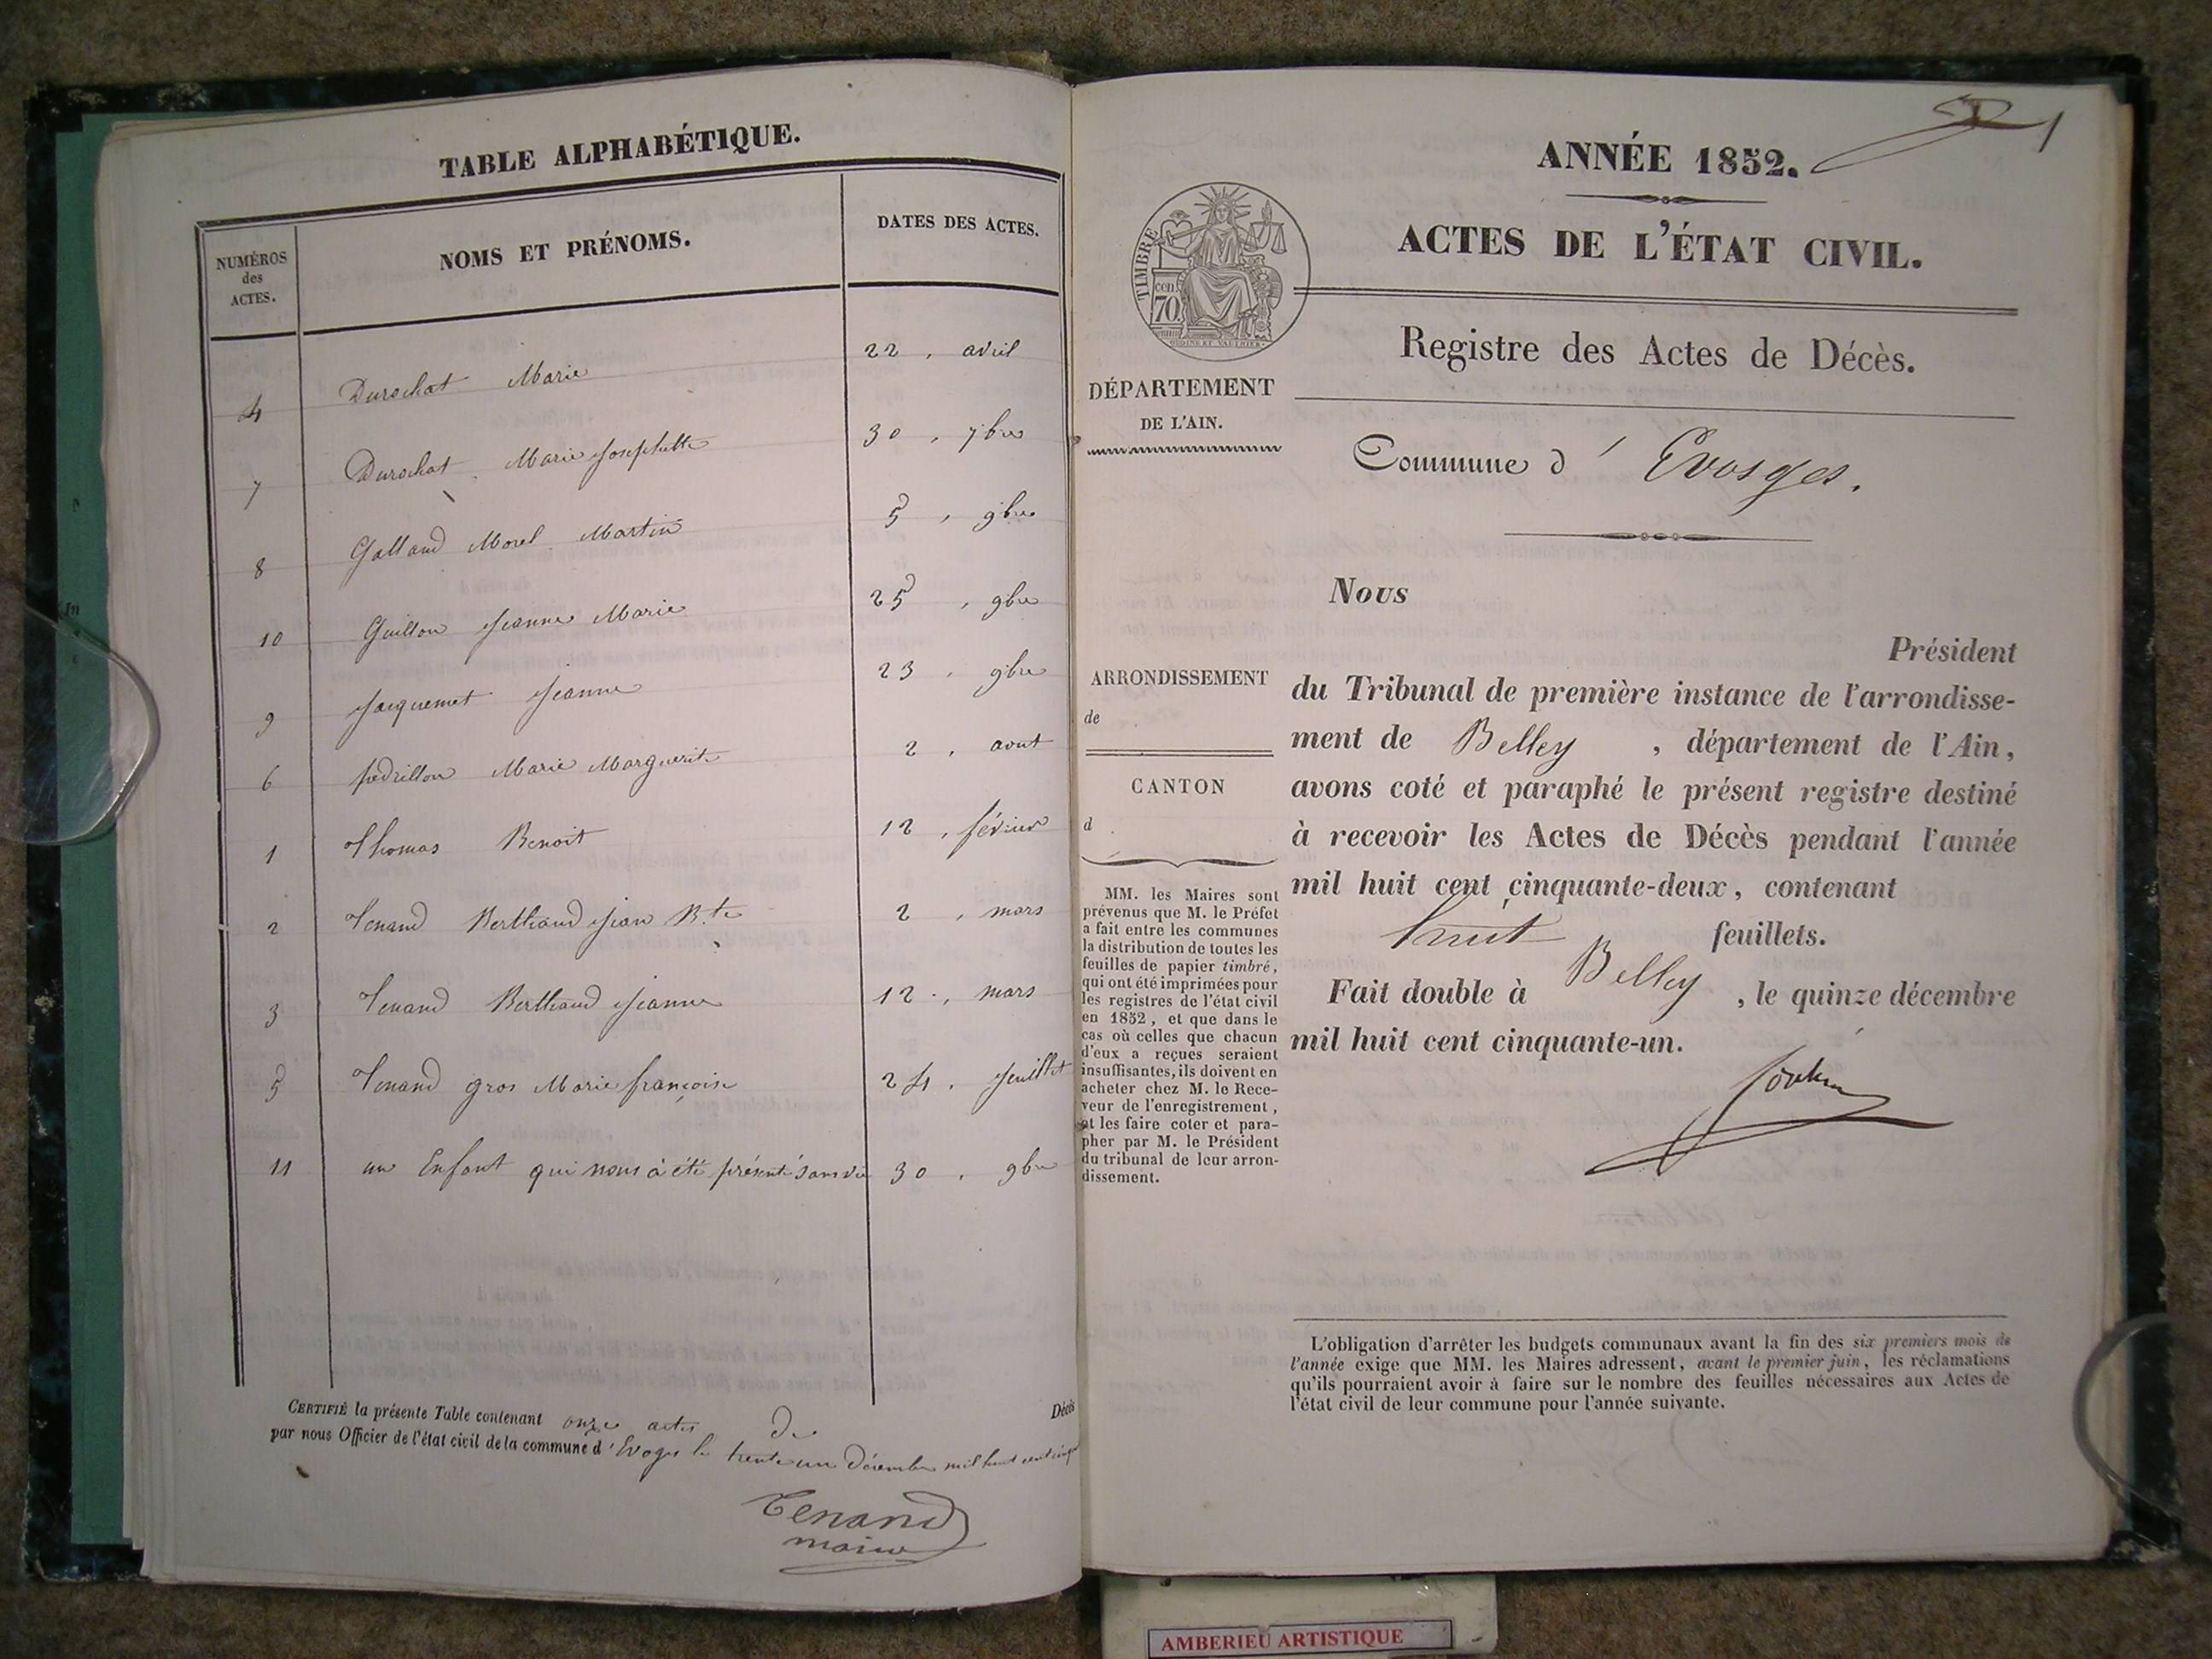 TABLE ALPHABÉTIQUE.
NUMÉROS des ACTES. NOMS ET PRÉNOMS. DATES DES ACTES.
4 Durochat Marie 22, avril
7 Durochat Marie Josephette 30, 7bre
8 Galland Morel Martin 5, 9bre
10 Guillon Jeanne Marie 25, 9bre
9 Jacquemet Jeanne 23, 9bre
6 pedrillon Marie Marguerite 2, aout
1 Thomas Benoit 12, février
2 Tenand Berthaud Jean Bte 2, mars
3 Tenand Berthaud Jeanne 12, mars
5 Tenand gros Marie françoise 24, Juillet
11 un Enfant qui nous à été présenté sans vie 30, 9bre
CERTIFIÉ la présente Table contenant onze actes de Décès
par nous Officier de l'état civil de la commune d'Evoges le trente un Décembre mil huit cent cinq
Tenand
maire
1
ANNÉE 1852.
ACTES DE L'ÉTAT CIVIL.
TIMBRE
cen. 70.
Registre des Actes de Décès.
DÉPARTEMENT
DE L'AIN.
Commune d' Evosges.
Nous
Président
du Tribunal de première instance de l'arrondisse-
ment de Belley, département de l'Ain,
avons coté et paraphé le présent registre destiné
à recevoir les Actes de Décès pendant l'année
mil huit cent cinquante-deux, contenant
huit feuillets.
Fait double à Belley, le quinze décembre
mil huit cent cinquante-un.
ARRONDISSEMENT
de
CANTON
d
MM. les Maires sont
prévenus que M. le Préfet
a fait entre les communes
la distribution de toutes les
feuilles de papier timbré,
qui ont été imprimées pour
les registres de l'état civil
en 1852, et que dans le
cas où celles que chacun
d'eux a reçues seraient
insuffisantes, ils doivent en
acheter chez M. le Rece-
veur de l'enregistrement,
et les faire coter et para-
pher par M. le Président
du tribunal de leur arron-
dissement.
L'obligation d'arrêter les budgets communaux avant la fin des six premiers mois de
l'année exige que MM. les Maires adressent, avant le premier juin, les réclamations
qu'ils pourraient avoir à faire sur le nombre des feuilles nécessaires aux Actes de
l'état civil de leur commune pour l'année suivante.
AMBERIEU ARTISTIQUE